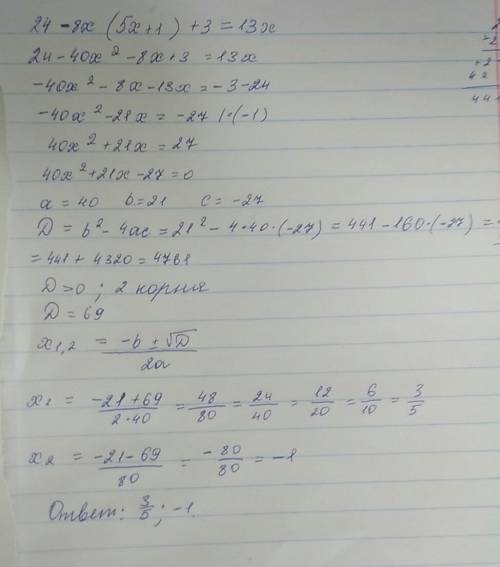 24 - 8x (5x+1) + 3 = 13x
24 - 40x² - 8x + 3 = 13x
-40x² - 8x - 13x = -3 - 24
-40x² - 21x = -27 | · (-1)
40x² + 21x = 27
40x² + 21x - 27 = 0
a = 40 b = 21 c = -27
D = b² - 4ac = 21² - 4·40·(-27) = 441 - 160·(-27) =
= 441 + 4320 = 4761
D>0 ; 2 корня
D = 69
x1,2 = -b ± √D / 2a
x1 = -21+69 / 2·40 = 48/80 = 24/40 = 12/20 = 6/10 = 3/5
x2 = -21-69 / 80 = -80/80 = -1
Ответ: 3/5 ; -1